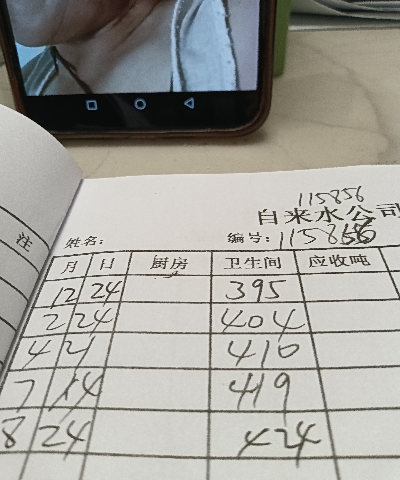 115856
自来水公司
注
姓名: 编号: 115856
月 日 厨房 卫生间 应收吨
12 24 395
2 24 404
4 21 410
7 14 419
8 24 424